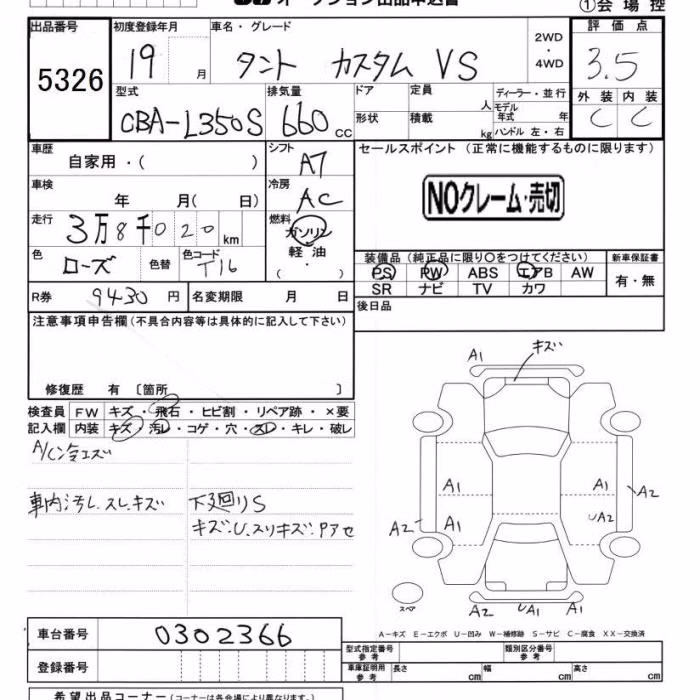 オークション出品申込書
①会場控
出品番号 初度登録年月 車名・グレード 2WD・4WD 評価点
5326 19 月 タント カスタム VS 3.5
型式 排気量 ドア 定員 人 ディーラー・並行 外装 内装
CBA-L350S 660 cc 形状 積載 kg モデル年式 年 ハンドル 左・右 C C
車歴 シフト セールスポイント (正常に機能するものに限ります)
自家用・( ) A7
車検 冷房 NOクレーム・売切
年 月( 日) AC
走行 燃料
3万8千020km ガソリン
色 色コード 軽油 装備品 (純正品に限り○をつけてください) 新車保証書
ローズ 色替 T16 ( ・ ) PS PW ABS エアB AW 有・無
R券 9430円 名変期限 月 日 SR ナビ TV カワ
後日品
注意事項申告欄(不具合内容等は具体的に記入して下さい)
修復歴 有 〔箇所 〕
検査員 FW キズ・飛石・ヒビ割・リペア跡・×要
記入欄 内装 キズ・汚レ・コゲ・穴・スレ・キレ・破レ
A/C冷エズ
車内汚レ.スレ.キズ 下廻りS
キズ.U.スリキズ.Pアセ
A1 キズ
A1 A1 A2
A2 A1 UA2
スペア A2 UA1 A1
A-キズ E-エクボ U-凹み W-補修跡 S-サビ C-腐食 XX-交換済
車台番号 0302366 型式指定番号 参考 類別区分番号 参考
登録番号 車庫証明用 参考 長さ cm 幅 cm 高さ cm
希望出品コーナー(コーナーは各会場により異なります。)